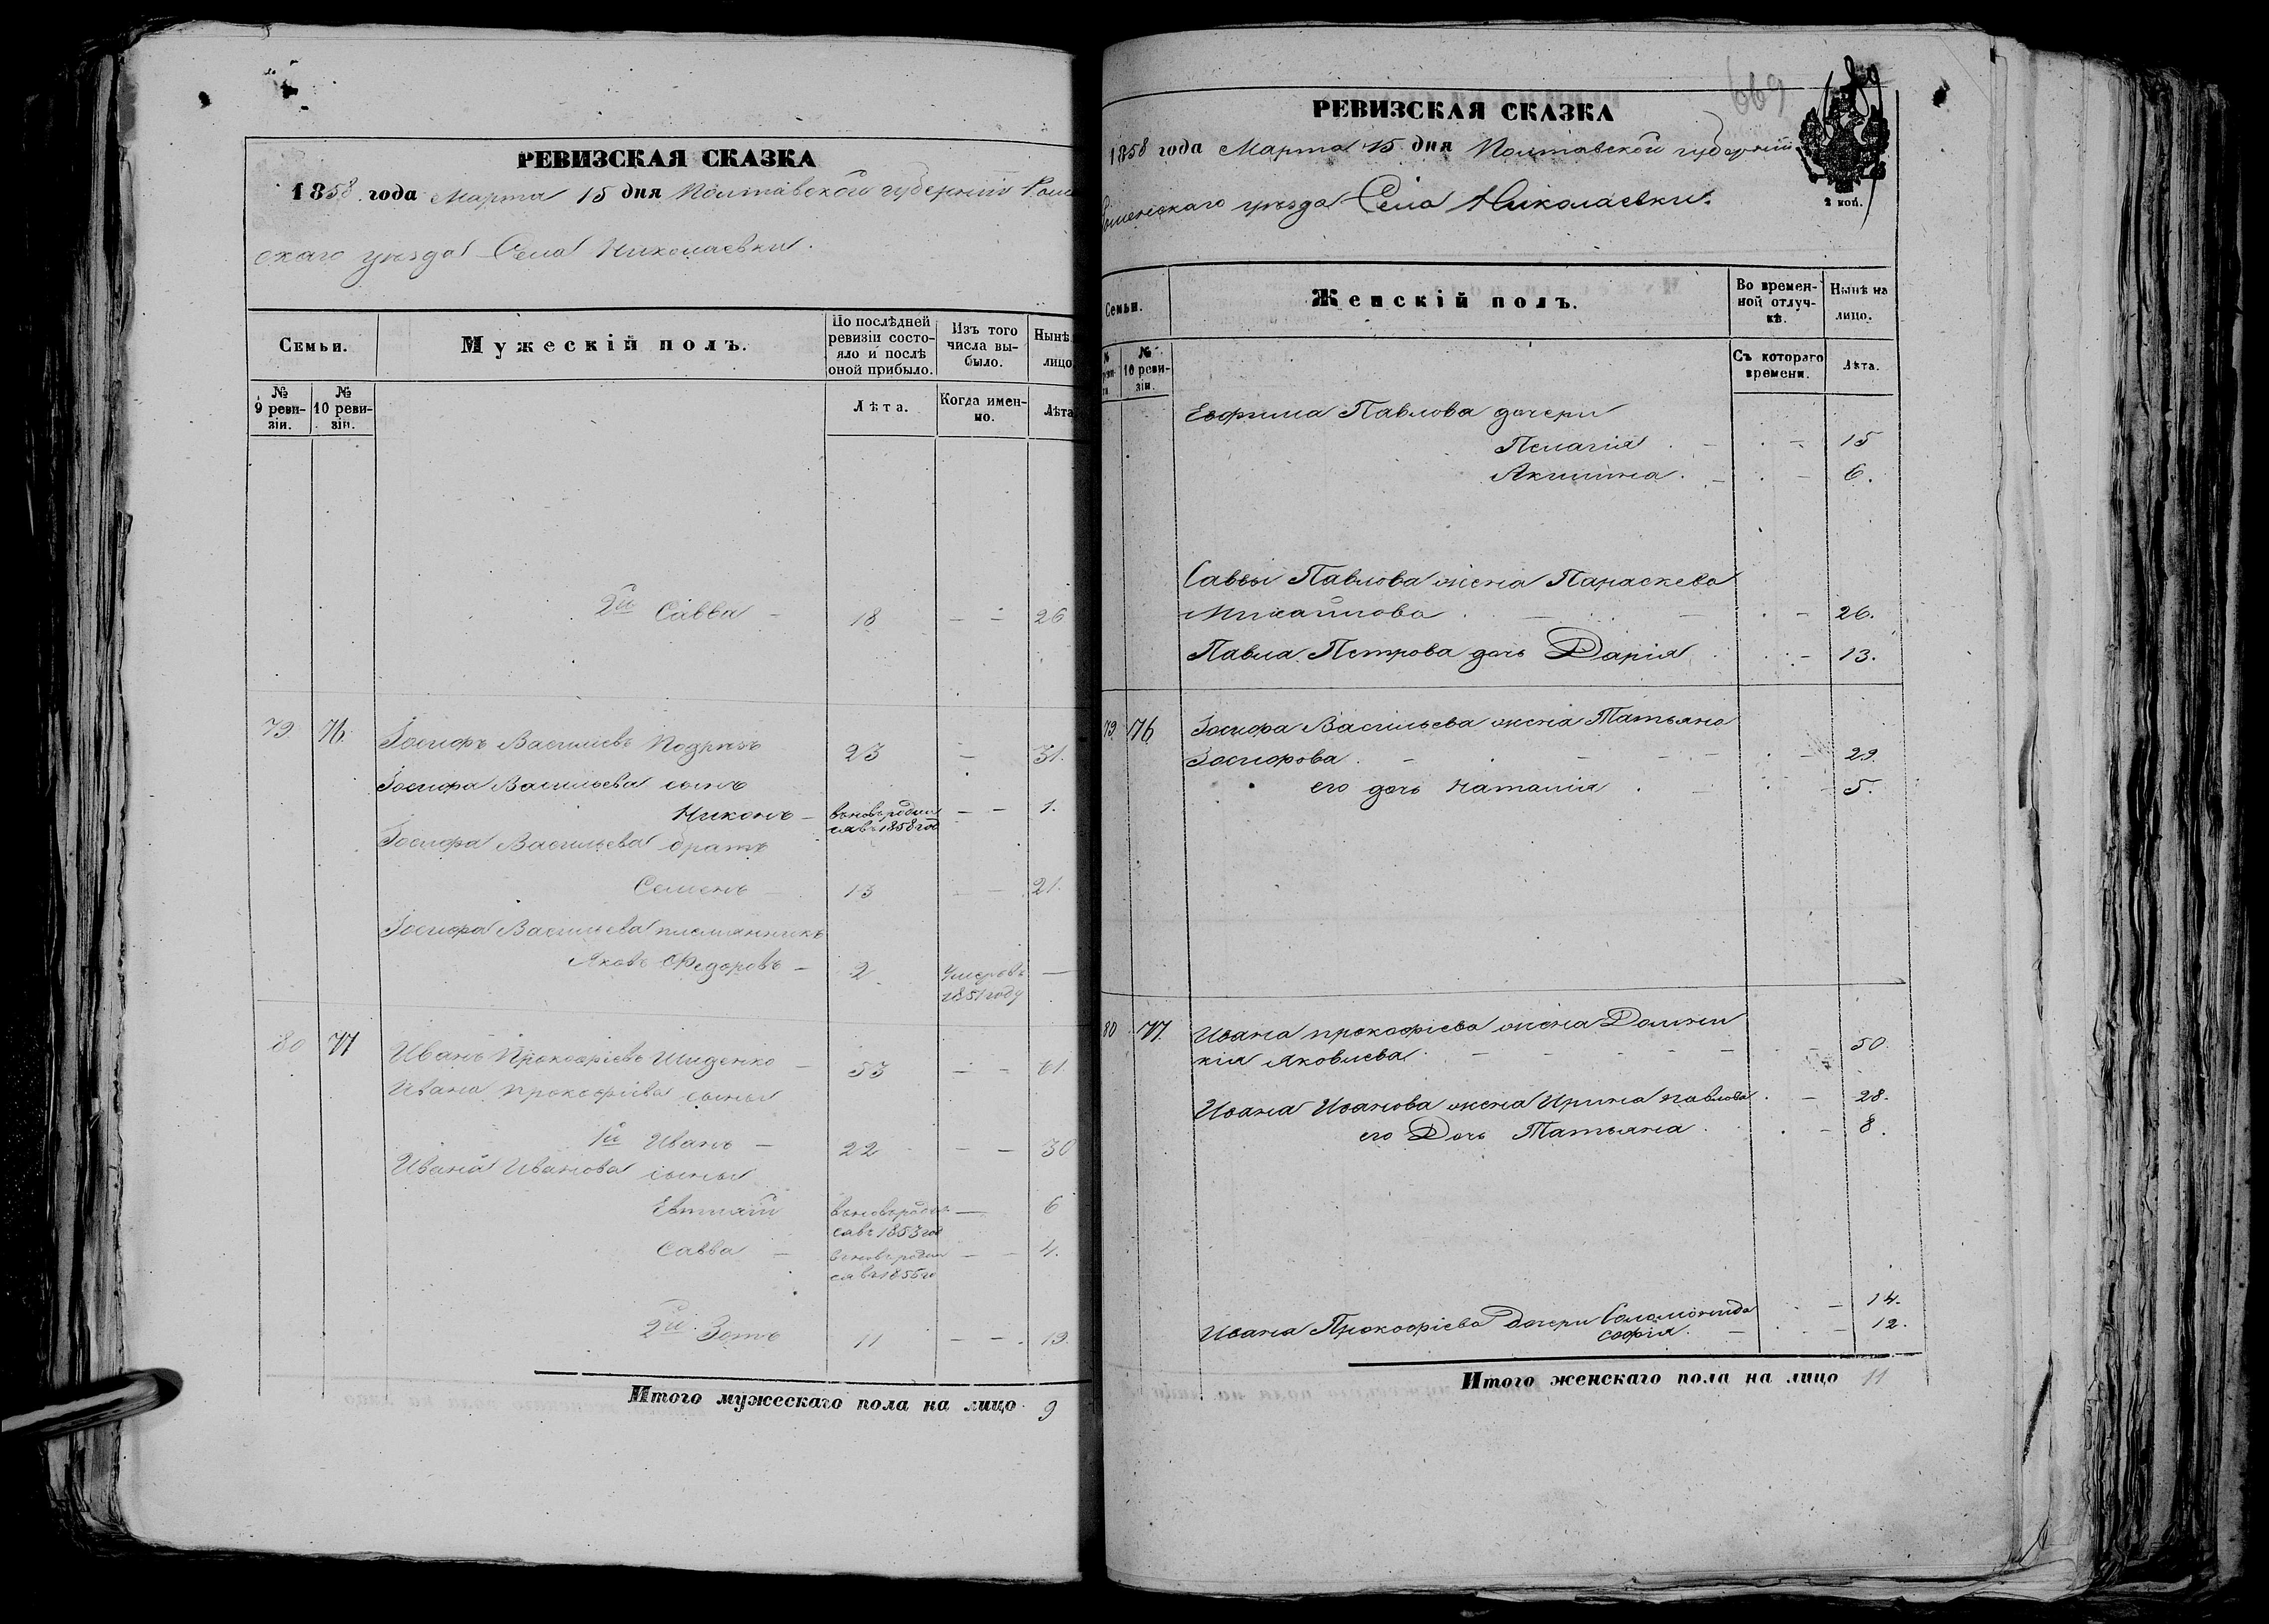 РЕВИЗСКАЯ СКАЗКА
1858 года Марта 15 дня Полтавской губерніи Роме
скаго уезда Села Николаевки.
Семьи.
Мужескій полъ.
По послѣдней ревизіи состо-
яло и послѣ
оной прибыло.
Изъ того
числа вы-
было.
Нынѣ
лицо
№
9 реви-
зіи.
№
10 реви-
зіи.
Лѣта.
Когда имен-
но.
Лѣта
2й Савва – 18 – – 26
79 76. Іосифъ Васильевъ Подрезъ 23 – 31.
Іосифа Васильева сынъ
Никонъ – вновь родил
ся въ 1858 год – – 1.
Іосифа Васильева братъ
Семенъ – 13 – – 21.
Іосифа Васильева племянникъ
Яковъ Федоровъ – 2 Умеръ въ
1851 году –
80 77 Иванъ Прокофіевъ – 53 – – 61
Ивана Прокофіева сыны
1й Иванъ – 22 – – 30
Ивана Иванова сыны
Евтихій вновь родил
ся въ 1853 год – 6
Савва – вновь родил
ся въ 1855 го – – 4.
2й Зотъ 11 – – 19.
Итого мужескаго пола на лицо 9
669
РЕВИЗСКАЯ СКАЗКА
1858 года Марта 15 дня Полтавской губерніи
Роменскаго уезда Села Николаевки.
2 коп.
Семьи.
Женскій полъ.
Во времен-
ной отлуч-
кѣ.
Нынѣ на
лицо.
№
10 реви-
зіи.
Съ котораго
времени.
Лѣта.
Ефима Павлова дочери
Пелагія – – 15
Акилина – – 6.
Саввы Павлова жена Параскева
Михайлова – – 26.
Павла Петрова дочь Дарія – 13.
79 76 Іосифа Васильева жена Татьяна
Іосифова – – – 29.
его дочь Наталія – – 5.
80 77. Ивана Прокофіева жена Домни
кія Яковлева – – – – – 50.
Ивана Иванова жена Ирина Павлова – 28.
его Дочь Татьяна – 8.
Ивана Прокофіева Дочери Соломонида – 14.
Софія – – 12.
Итого женскаго пола на лицо 11